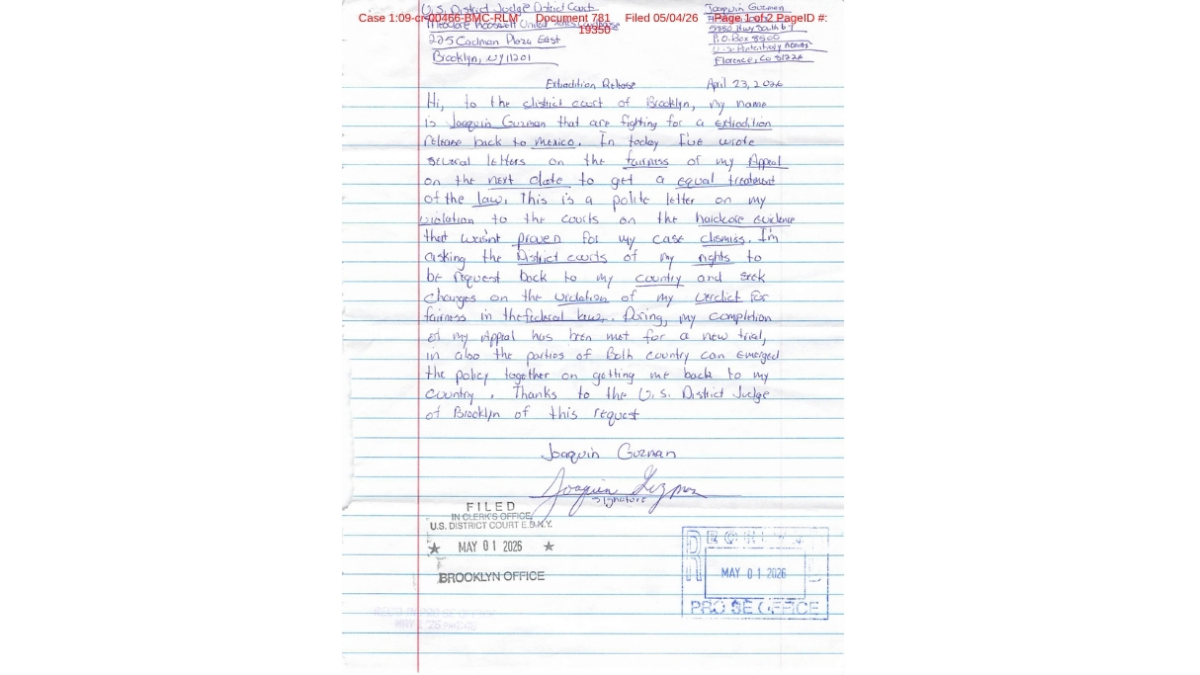 U.S. District Judge District Court
Joaquin Guzman
Case 1:09-cr-00466-BMC-RLM Document 781 Filed 05/04/26 Page 1 of 2 PageID #:
19350
Theodore Roosevelt United States
5880 Hwy 67 South
225 Cadman Plaza East
P.O. Box 8500
Brooklyn, NY 11201
U.S. Penitentiary
Florence, Co 81226
Extradition Release
April 23, 2026
Hi, to the district court of Brooklyn, my name
is Joaquin Guzman that are fighting for a extradition
release back to mexico. In today I've wrote
several letters on the fairness of my Appeal
on the next date to get a equal treatment
of the law. This is a polite letter on my
violation to the courts on the hardcore evidence
that wasn't proven for my case dismiss. I'm
asking the District courts of my rights to
be request back to my country and seek
changes on the violation of my verdict for
fairness in the federal law. During, my completion
of my Appeal has been met for a new trial,
in also the parties of Both country can emerged
the policy together on getting me back to my
country. Thanks to the U.S. District Judge
of Brooklyn of this request
Joaquin Guzman
Joaquin Guzman
signature
FILED
IN CLERK'S OFFICE
U.S. DISTRICT COURT E.D.N.Y.
★ MAY 01 2026 ★
BROOKLYN OFFICE
MAY 01 2026
PRO SE OFFICE